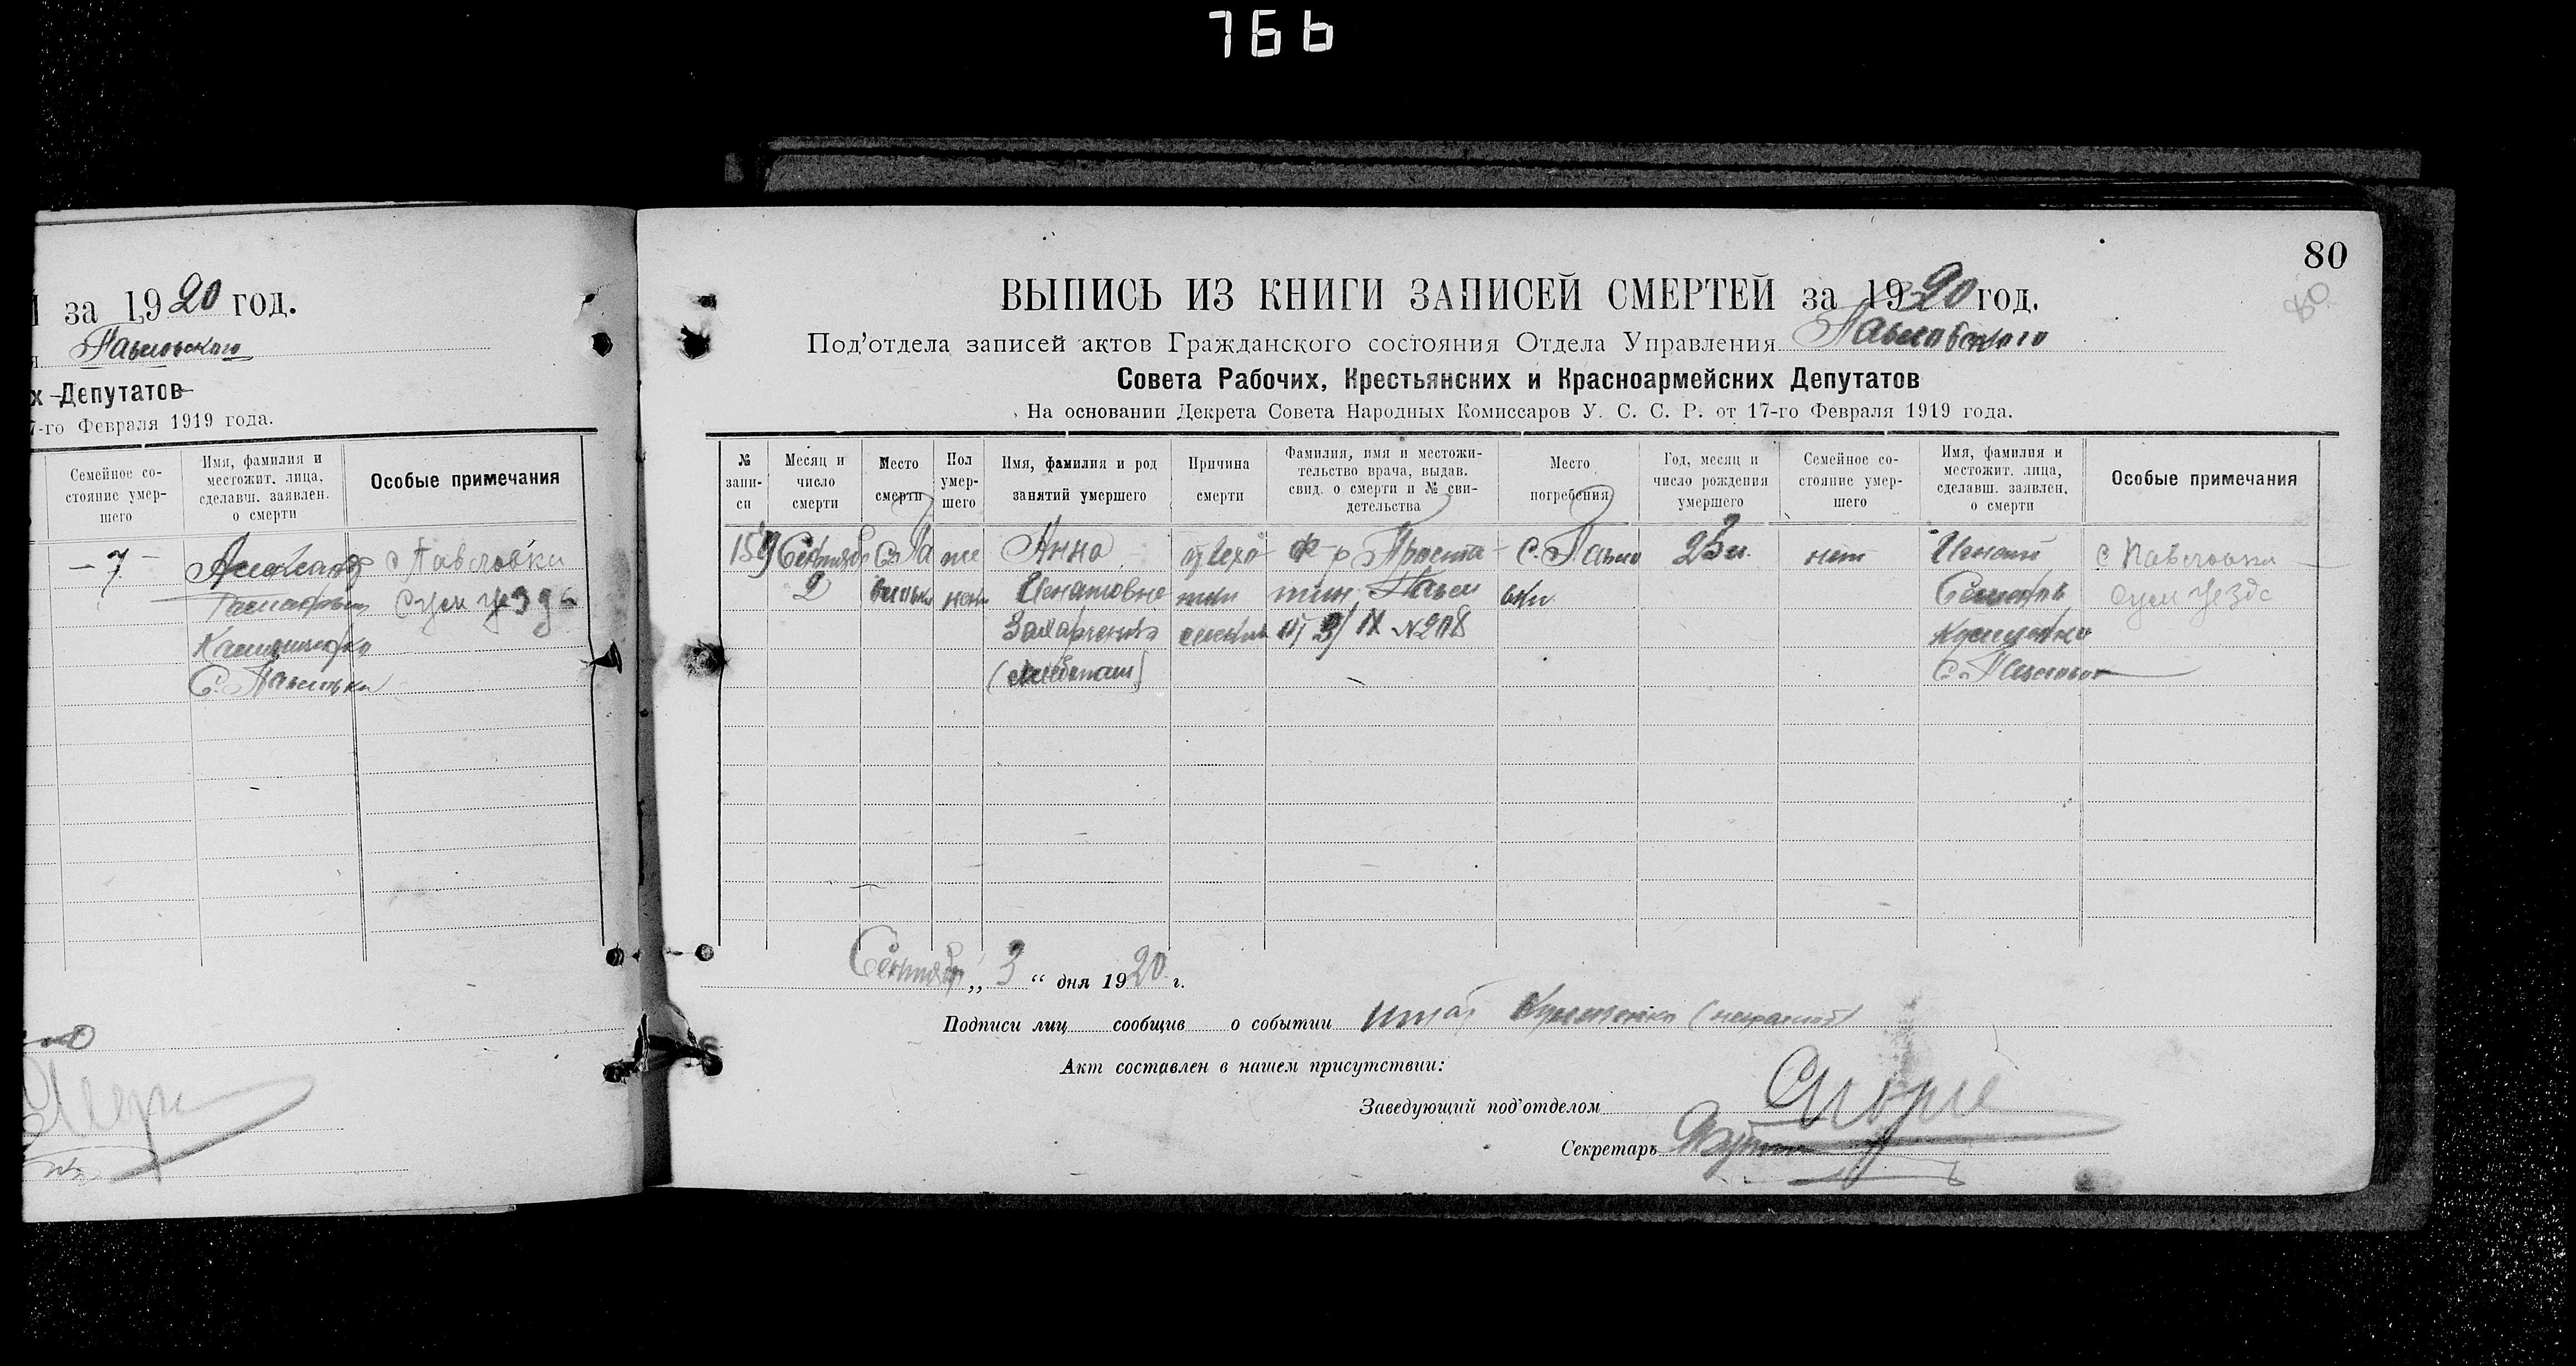 766
за 1920 год.
Павловского
х Депутатов
7-го Февраля 1919 года.
Семейное со-
стояние умер-
шего
Имя, фамилия и
местожит. лица,
сделавш. заявлен.
о смерти
Особые примечания
с Павловки
Сум уезда
С. Павловки
80
80
ВЫПИСЬ ИЗ КНИГИ ЗАПИСЕЙ СМЕРТЕЙ за 1920 год.
Под'отдела записей актов Гражданского состояния Отдела Управления Павловского
Совета Рабочих, Крестьянских и Красноармейских Депутатов
На основании Декрета Совета Народных Комиссаров У. С. С. Р. от 17-го Февраля 1919 года.
№
запи-
си
Месяц и
число
смерти
Место
смерти
Пол
умер-
шего
Имя, фамилия и род
занятий умершего
Причина
смерти
Фамилия, имя и местожи-
тельство врача, выдав.
свид. о смерти и № сви-
детельства
Место
погребения
Год, месяц и
число рождения
умершего
Семейное со-
стояние умер-
шего
Имя, фамилия и
местожит. лица,
сделавш. заявлен.
о смерти
Особые примечания
159
Сентябр
2
с. Па
вловка
же
нск
Анна
Игнатовна
Захарченко
С. Павло
вки
от 3/IX №208
нет
Игнат
С. Павловк
с Павловки
Сум уезда
Сентябр „ 3 “ дня 1920 г.
Подписи лиц сообщив о событии Игнат
Акт составлен в нашем присутствии:
Заведующий под'отделом
Секретарь